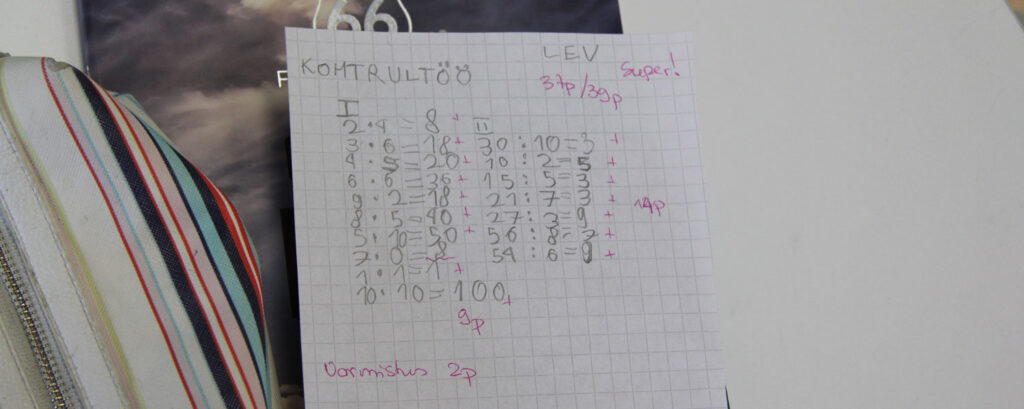 66
F
LEV
KOMTRULTÖÖ
37p/39p Super!
I
2·4=8 +
3·6=18+
4·5=20+
6·6=36+
9·2=18+
8·5=40+
5·10=50+
7·0=
1·1=1 +
10·10=100+
9p
II
30:10=3 +
10:2=5 +
15:5=3 +
21:7=3 +
27:3=9 +
56:8=7 +
54:6=9 +
14p
Vormistus 2p